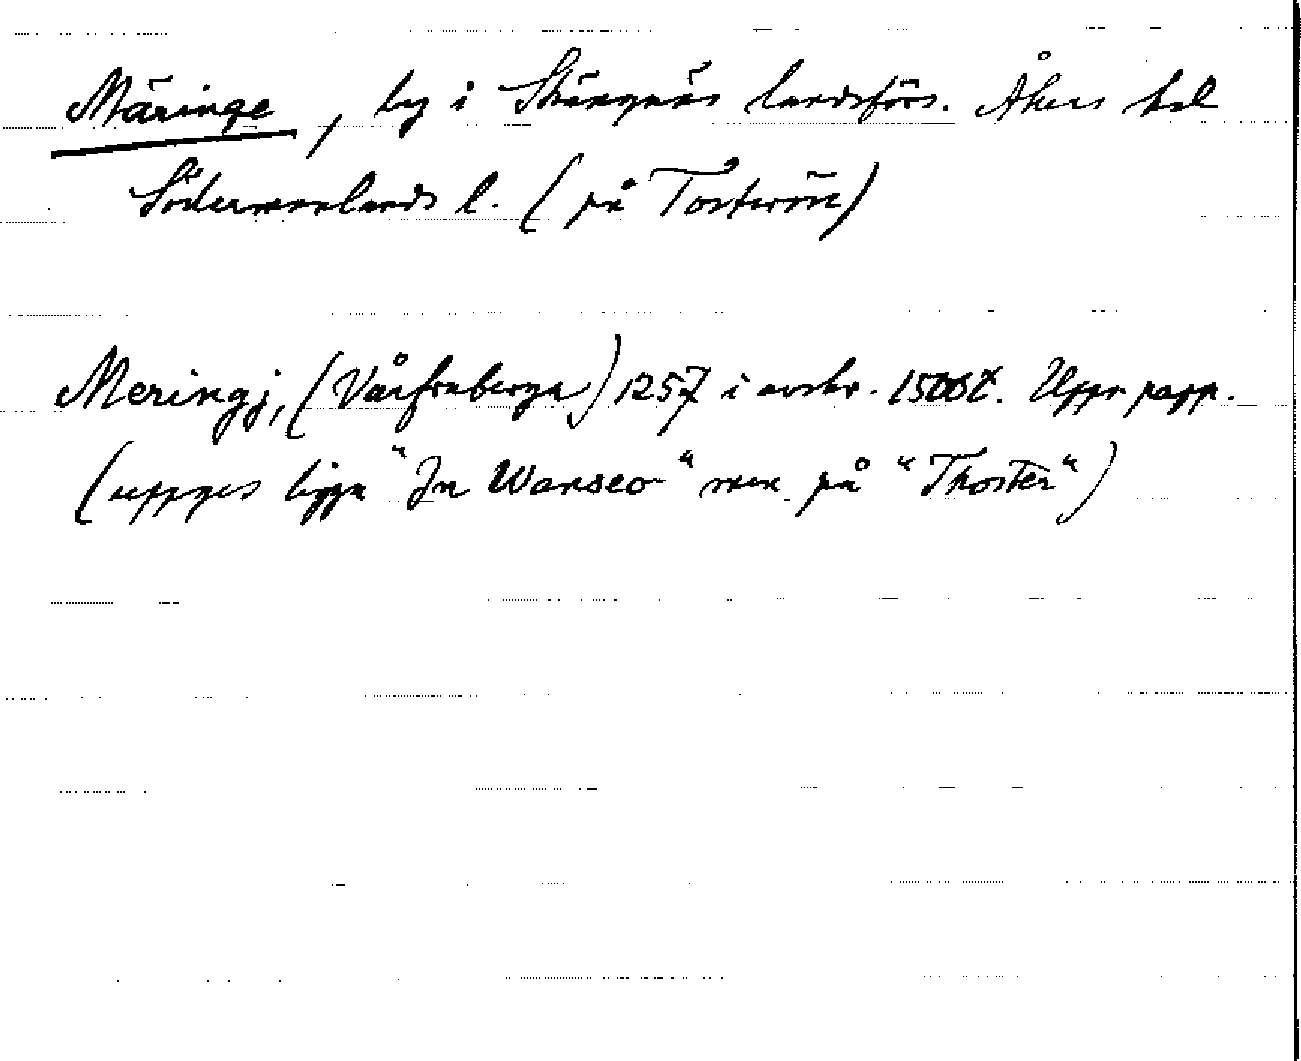 Märinge, by i Strängnäs landsförs. Åkers hd
Södermanlands l. (på Tosterön)
Meringi, (Vårfruberga) 1257 i avskr. 1500t. Uppr papp.
(uppges ligga "In Wanseo" men på "Thoster")